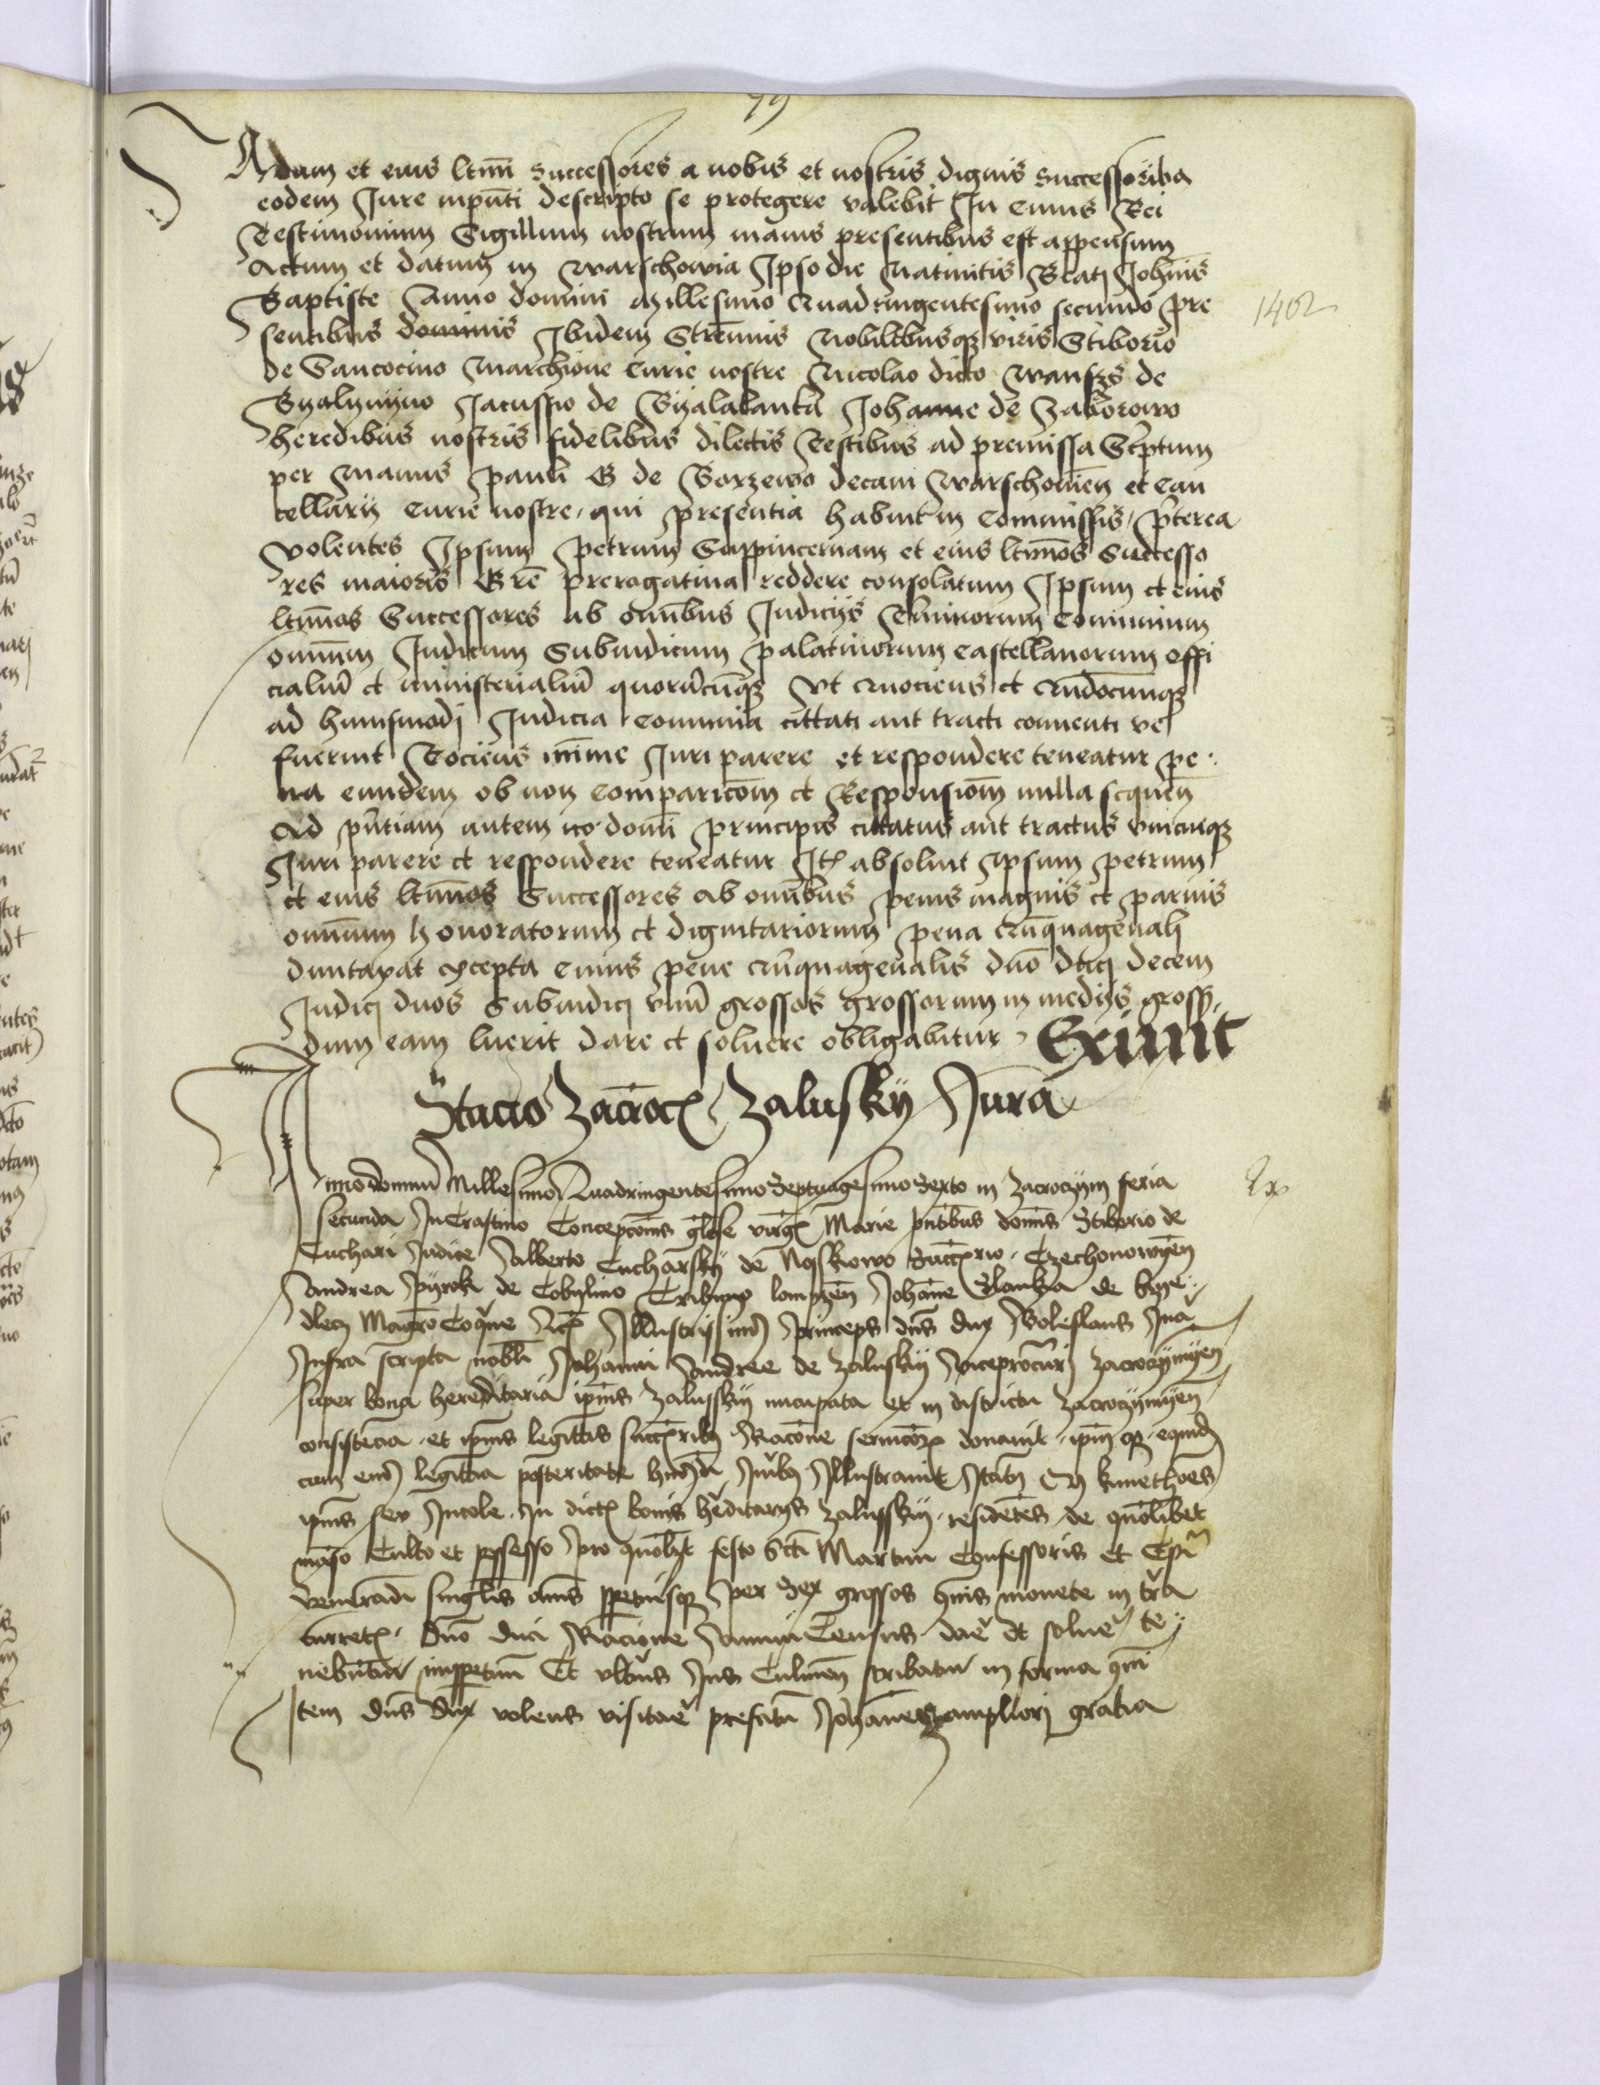 79
Adam et eius ltimi Successores a nobis et nostris dignis Successoriba
eodem Jure inpnti descripto se protegere valebit In Cuius Rei
Testimonium Sigillum nostrum maius presentibus est appensum
Actum et datum in Warschowia Ipso die Natiuitis Beati Johnis
Baptiste Anno domini Millesimo Quadringentesimo secundo pre
1402
sentibus dominis Ibidem Strennuis Nobilibusqz viris Stiborio
de Sancocino Marchione Curie nostre Nicolao dicto de
Jacussio de Johanne de Zaborowo
heredibus nostris fidelibus dilectis Testibus ad premissa Scriptum
per Manus Pauli G de Borzewo decani Warschouien et Can
cellarij Curie nostre qui presentia habuit in Commissis pterea
volentes Ipsum Petrum Suppincernam et eius ltimos Successo
res maioris Gre prerogatiua reddere consolatum Ipsum et eius
ltimos Successores ab omibus Judicijs Terminorum Communium
omnium Judicum Subiudicum Palatinorum Castellanorum offi
cialium et ministerialium quorumcunqz Vt Quociens et Quandocunqz
ad huiusmodi Judicia Communia cittati aut tracti conuenti ve
fuerint Tociens minime Juri parere et respondere teneatur pe
na eundem ob non Comparicom et Responsiom nulla sequen
Ad pntiam autem domi principis cittatus aut tractus vnicuiqz
Juri parere et respondere teneatur It absoluit Ipsum Petrum
et eius ltimos Successores ab omibus penis magnis et paruis
omnium honoratorum et dignitariorum pena Quinquagenali
duntaxat excepta Cuius pene Quinquagenalis decem
Judici duos Subiudici vnu grossos grossorum in medijs gross
dum eam luerit dare et soluere obligabitur Eximit
Stacio Zacroc Zalusky Jura
Anno domini Millesimo Quadringentesimo Septuagesimo Sexto in Zacroczym feria
secunda In Crastino Concepcois glose virgis Marie pntibus domis Stiborio de
Cuchari Judice Alberto Cucharsky de Noskowo Czechonowien
Andrea Pyrok de Cobylino Tribuno lomzen Johane de
Magro Coqne Illustrissimus princeps dns dux Boleslaus Jura
Infra scripta nobli Johanni Andree de Zalusky viceprocuri Zacroczymyen
super bona hereditaria ipius Zalussky nucupata et in districtu Zacroczymyen
consistecia et ipius legitimis succribus Racone seruicorz donauit
cum eius legittima posteritate Illustrauit kmethones
ipius seu Incole In dictis bonis hereditarys Zalussky residetes de quolibet
maso Culto et possesso pro quolibet festo Scti Martini Confessoris et Epi
venerandi singlis anis ppetuisqz per Sex grossos monete in tra
currets Dno duci Racione Annui Census dare et soluere te
nebuntur imppetuu Et vlterius Jus Culmen scribatur in forma
Item dns dux volens visitare prefatu Johanes ampliori gratia